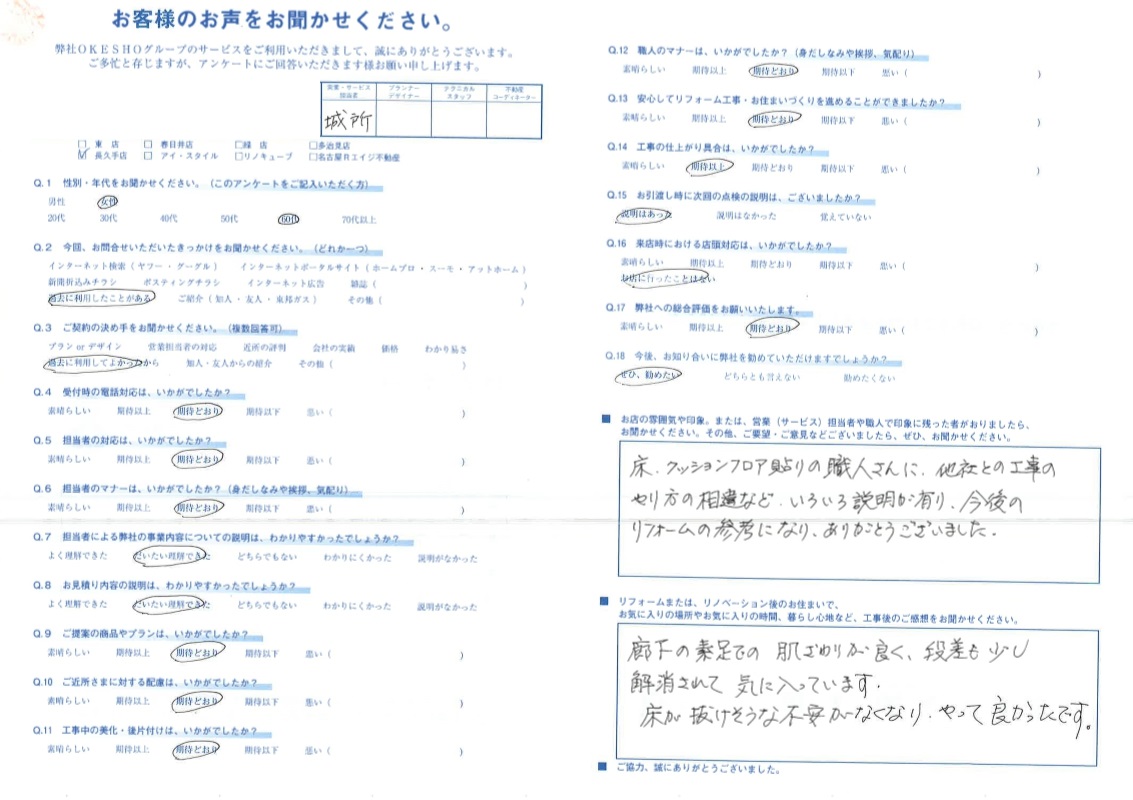 お客様のお声をお聞かせください。
弊社ＯＫＥＳＨＯグループのサービスをご利用いただきまして、誠にありがとうございます。
ご多忙と存じますが、アンケートにご回答いただきます様お願い申し上げます。
営業・サービス担当者 プランナーデザイナー テクニカルスタッフ 不動産コーディネーター
城所
□ 東 店 □ 春日井店 □緑 店 □多治見店
☑ 長久手店 □ アイ・スタイル □リノキューブ □名古屋Ｒエイジ不動産
Q.1 性別・年代をお聞かせください。（このアンケートをご記入いただく方）
男性 女性
20代 30代 40代 50代 60代 70代以上
Q.2 今回、お問合せいただいたきっかけをお聞かせください。（どれか一つ）
インターネット検索（ ヤフー ・ グーグル ） インターネットポータルサイト（ ホームプロ ・ スーモ ・ アットホーム ）
新聞折込みチラシ ポスティングチラシ インターネット広告 雑誌（ ）
過去に利用したことがある ご紹介（ 知人 ・ 友人 ・ 東邦ガス ） その他（ ）
Q.3 ご契約の決め手をお聞かせください。（複数回答可）
プラン or デザイン 営業担当者の対応 近所の評判 会社の実績 価格 わかり易さ
過去に利用してよかったから 知人・友人からの紹介 その他（ ）
Q.4 受付時の電話対応は、いかがでしたか？
素晴らしい 期待以上 期待どおり 期待以下 悪い（ ）
Q.5 担当者の対応は、いかがでしたか？
素晴らしい 期待以上 期待どおり 期待以下 悪い（ ）
Q.6 担当者のマナーは、いかがでしたか？（身だしなみや挨拶、気配り）
素晴らしい 期待以上 期待どおり 期待以下 悪い（ ）
Q.7 担当者による弊社の事業内容についての説明は、わかりやすかったでしょうか？
よく理解できた だいたい理解できた どちらでもない わかりにくかった 説明がなかった
Q.8 お見積り内容の説明は、わかりやすかったでしょうか？
よく理解できた だいたい理解できた どちらでもない わかりにくかった 説明がなかった
Q.9 ご提案の商品やプランは、いかがでしたか？
素晴らしい 期待以上 期待どおり 期待以下 悪い（ ）
Q.10 ご近所さまに対する配慮は、いかがでしたか？
素晴らしい 期待以上 期待どおり 期待以下 悪い（ ）
Q.11 工事中の美化・後片付けは、いかがでしたか？
素晴らしい 期待以上 期待どおり 期待以下 悪い（ ）
Q.12 職人のマナーは、いかがでしたか？（身だしなみや挨拶、気配り）
素晴らしい 期待以上 期待どおり 期待以下 悪い（ ）
Q.13 安心してリフォーム工事・お住まいづくりを進めることができましたか？
素晴らしい 期待以上 期待どおり 期待以下 悪い（
Q.14 工事の仕上がり具合は、いかがでしたか？
素晴らしい 期待以上 期待どおり 期待以下 悪い（ ）
Q.15 お引渡し時に次回の点検の説明は、ございましたか？
説明はあった 説明はなかった 覚えていない
Q.16 来店時における店頭対応は、いかがでしたか？
素晴らしい 期待以上 期待どおり 期待以下 悪い（ ）
お店に行ったことはない
Q.17 弊社への総合評価をお願いいたします。
素晴らしい 期待以上 期待どおり 期待以下 悪い（ ）
Q.18 今後、お知り合いに弊社を勧めていただけますでしょうか？
ぜひ、勧めたい どちらとも言えない 勧めたくない
■ お店の雰囲気や印象。または、営業（サービス）担当者や職人で印象に残った者がおりましたら、
お聞かせください。その他、ご要望・ご意見などございましたら、ぜひ、お聞かせください。
床．クッションフロア貼りの職人さんに、他社との工事の
やり方の相違など、いろいろ説明が有り、今後の
リフォームの参考になり、ありがとうございました．
■ リフォームまたは、リノベーション後のお住まいで、
お気に入りの場所やお気に入りの時間、暮らし心地など、工事後のご感想をお聞かせください。
廊下の素足での 肌ざわりが良く、段差も少し
解消されて 気に入っています．
床が抜けそうな不安がなくなり．やって良かったです。
■ ご協力、誠にありがとうございました。